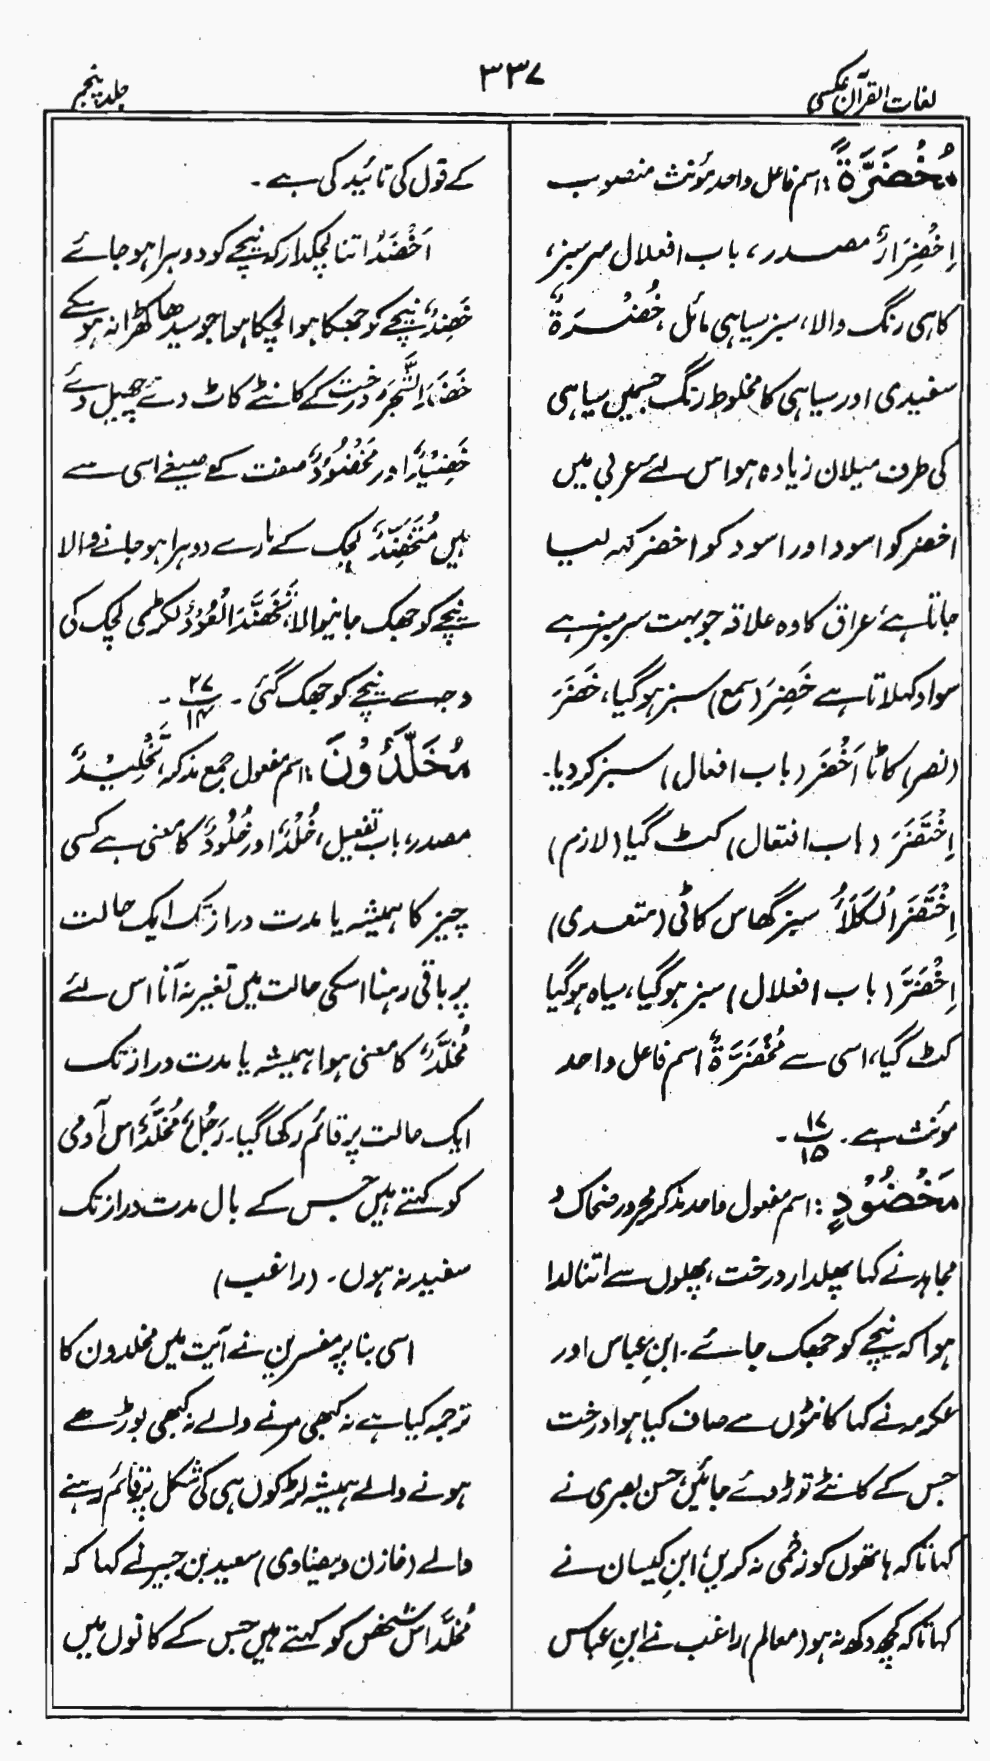 لغات القرآن عکسی
۳۳۷
جلد پنجم
مُخْضَرَّةً : اسم فاعل واحد مؤنث منصوب
اِخْضِرَارٌ مصدر، باب افعلال سرسبز،
کاہی رنگ والا، سبز سیاہی مائل، خُضْرَةٌ
سفیدی اور سیاہی کا مخلوط رنگ جسمیں سیاہی
کی طرف میلان زیادہ ہو اس لئے عربی میں
اخضر کو اسود اور اسود کو اخضر کہہ لیا
جاتا ہے عراق کا وہ علاقہ جو بہت سرسبز ہے
سواد کہلاتا ہے خَضِرَ (سمع) سبز ہو گیا، خَضَرَ
(نصر) کاٹا اَخْضَرَ (باب افعال) سبز کر دیا۔
اِخْتَضَرَ (باب افتعال) کٹ گیا (لازم)
اِخْتَضَرَ الْکَلَأَ سبز گھاس کاٹی (متعدی)
اِخْضَرَّ (باب افعلال) سبز ہو گیا، سیاہ ہو گیا
کٹ گیا، اسی سے مُخْضَرَّةٌ اسم فاعل واحد
مؤنث ہے۔ ۱۷/۱۵ ۔
مَخْضُوْدٍ : اسم مفعول واحد مذکر مجرور ضحاک و
مجاہد نے کہا پھلدار درخت، پھلوں سے اتنا لدا
ہوا کہ نیچے کو جھک جائے۔ ابنِ عباس اور
عکرمہ نے کہا کانٹوں سے صاف کیا ہوا درخت
جس کے کانٹے توڑ دئے جائیں حسن بصری نے
کہا تاکہ ہاتھوں کو زخمی نہ کریں، ابنِ کیسان نے
کہا تاکہ کچھ دکھ نہ ہو (معالم) راغب نے ابنِ عباس
کے قول کی تائید کی ہے۔
اَخْضَدُ اتنا لچکدار کہ نیچے کو دوہرا ہو جائے
خَضِدٌ نیچے کو جھکا ہوا لچکا ہوا جو سیدھا کھڑا نہ ہو سکے
خَضَدَ الشَّجَرَ درخت کے کانٹے کاٹ دے چھیل دئے
خَضِیْدٌ اور مَخْضُوْدٌ صفت کے صیغے اسی سے
ہیں مُتَخَضِّدٌ لچک کے مارے دوہرا ہو جانے والا
نیچے کو جھک جانیوالا، تَخَضَّدَ الْعُوْدُ لکڑی لچک کی
وجہ سے نیچے کو جھک گئی ۔ ۲۷/۱۴ ۔
مُخَلَّدُوْنَ : اسم مفعول جمع مذکر، تَخْلِیْدٌ
مصدر، باب تفعیل، خُلْدٌ اور خُلُوْدٌ کا معنی ہے کسی
چیز کا ہمیشہ یا مدت دراز تک ایک حالت
پر باقی رہنا اسکی حالت میں تغیر نہ آنا اس لئے
مُخَلَّدٌ کا معنی ہوا ہمیشہ یا مدت دراز تک
ایک حالت پر قائم رکھا گیا۔ رَجُلٌ مُخَلَّدٌ اس آدمی
کو کہتے ہیں جس کے بال مدت دراز تک
سفید نہ ہوں۔ (راغب)
اسی بنا پر مفسرین نے آیت میں مخلدون کا
ترجمہ کیا ہے نہ کبھی مرنے والے نہ کبھی بوڑھے
ہونے والے ہمیشہ لڑکوں ہی کی شکل پر قائم رہنے
والے (خازن و بیضاوی) سعید بن جبیر نے کہا کہ
مُخَلَّد اس شخص کو کہتے ہیں جس کے کانوں میں